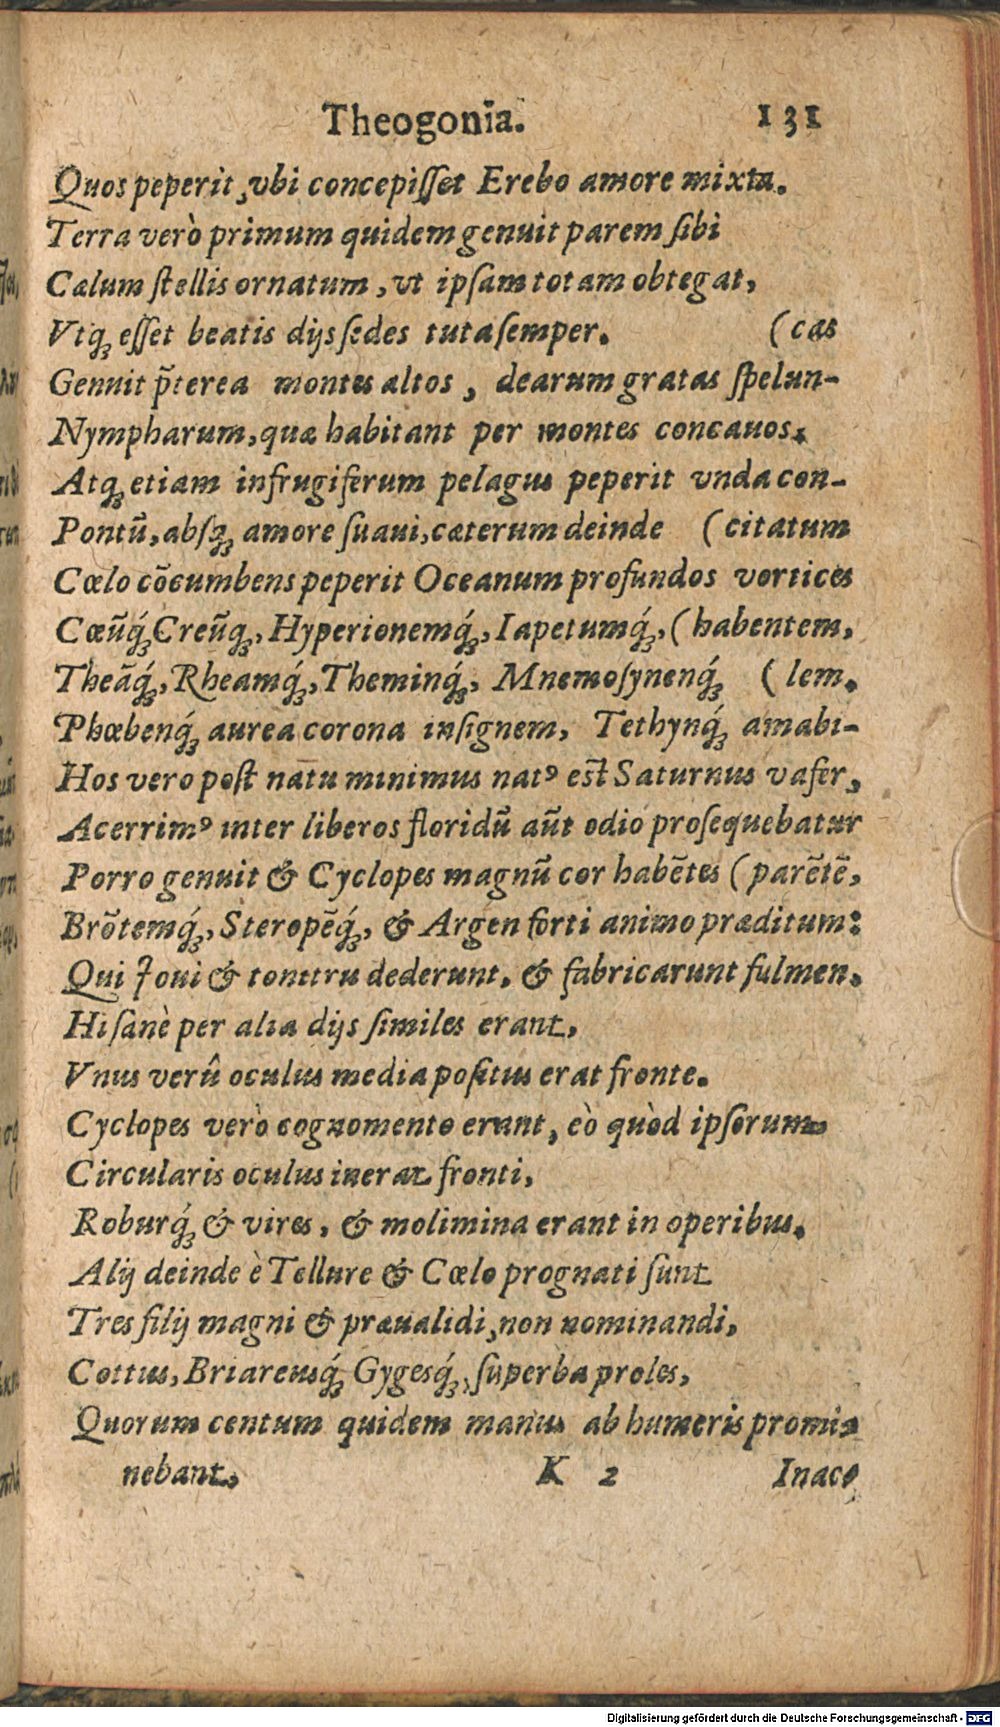 Theogonia. 131
Quos peperit, vbi concepiſſet Erebo amore mixta.
Terra verò primum quidem genuit parem ſibi
Cælum ſtellis ornatum, vt ipſam totam obtegat,
Vtq́ꝫ eſſet beatis dijs ſedes tuta ſemper. (cas
Genuit p̃terea montes altos, dearum gratas ſpelun-
Nympharum, quæ habitant per montes concauos.
Atqꝫ etiam infrugiferum pelagus peperit vnda con-
Pontũ, abſqꝫ amore ſuaui, cæterum deinde (citatum
Cœlo cõcumbens peperit Oceanum profundos vortices
Cœũq́ꝫ Creũqꝫ, Hyperionemq́ꝫ, Iapetumq́ꝫ, (habentem,
Theãq́ꝫ, Rheamq́ꝫ, Theminq́ꝫ, Mnemoſynenq́ꝫ (lem.
Phœbenq́ꝫ aurea corona inſignem, Tethynq́ꝫ amabi-
Hos vero poſt natu minimus natꝰ eſt Saturnus vafer,
Acerrimꝰ inter liberos floridũ aũt odio proſequebatur
Porro genuit & Cyclopes magnũ cor habẽtes (parẽtẽ,
Brõtemq́ꝫ, Steropẽq́ꝫ, & Argen forti animo præditum:
Qui Ioui & tonitru dederunt, & fabricarunt fulmen.
Hi ſanè per alia dijs ſimiles erant,
Vnus verũ oculus media poſitus erat fronte.
Cyclopes verò cognomento erant, eò quòd ipſorum
Circularis oculus inerat fronti,
Roburq́ꝫ & vires, & molimina erant in operibus.
Alij deinde è Tellure & Cœlo prognati ſunt
Tres filij magni & præualidi, non nominandi,
Cottus, Briareusq́ꝫ Gygesq́ꝫ, ſuperba proles,
Quorum centum quidem manus ab humeris promi-
nebant, K 2 Inace
Digitalisierung gefördert durch die Deutsche Forschungsgemeinschaft - DFG